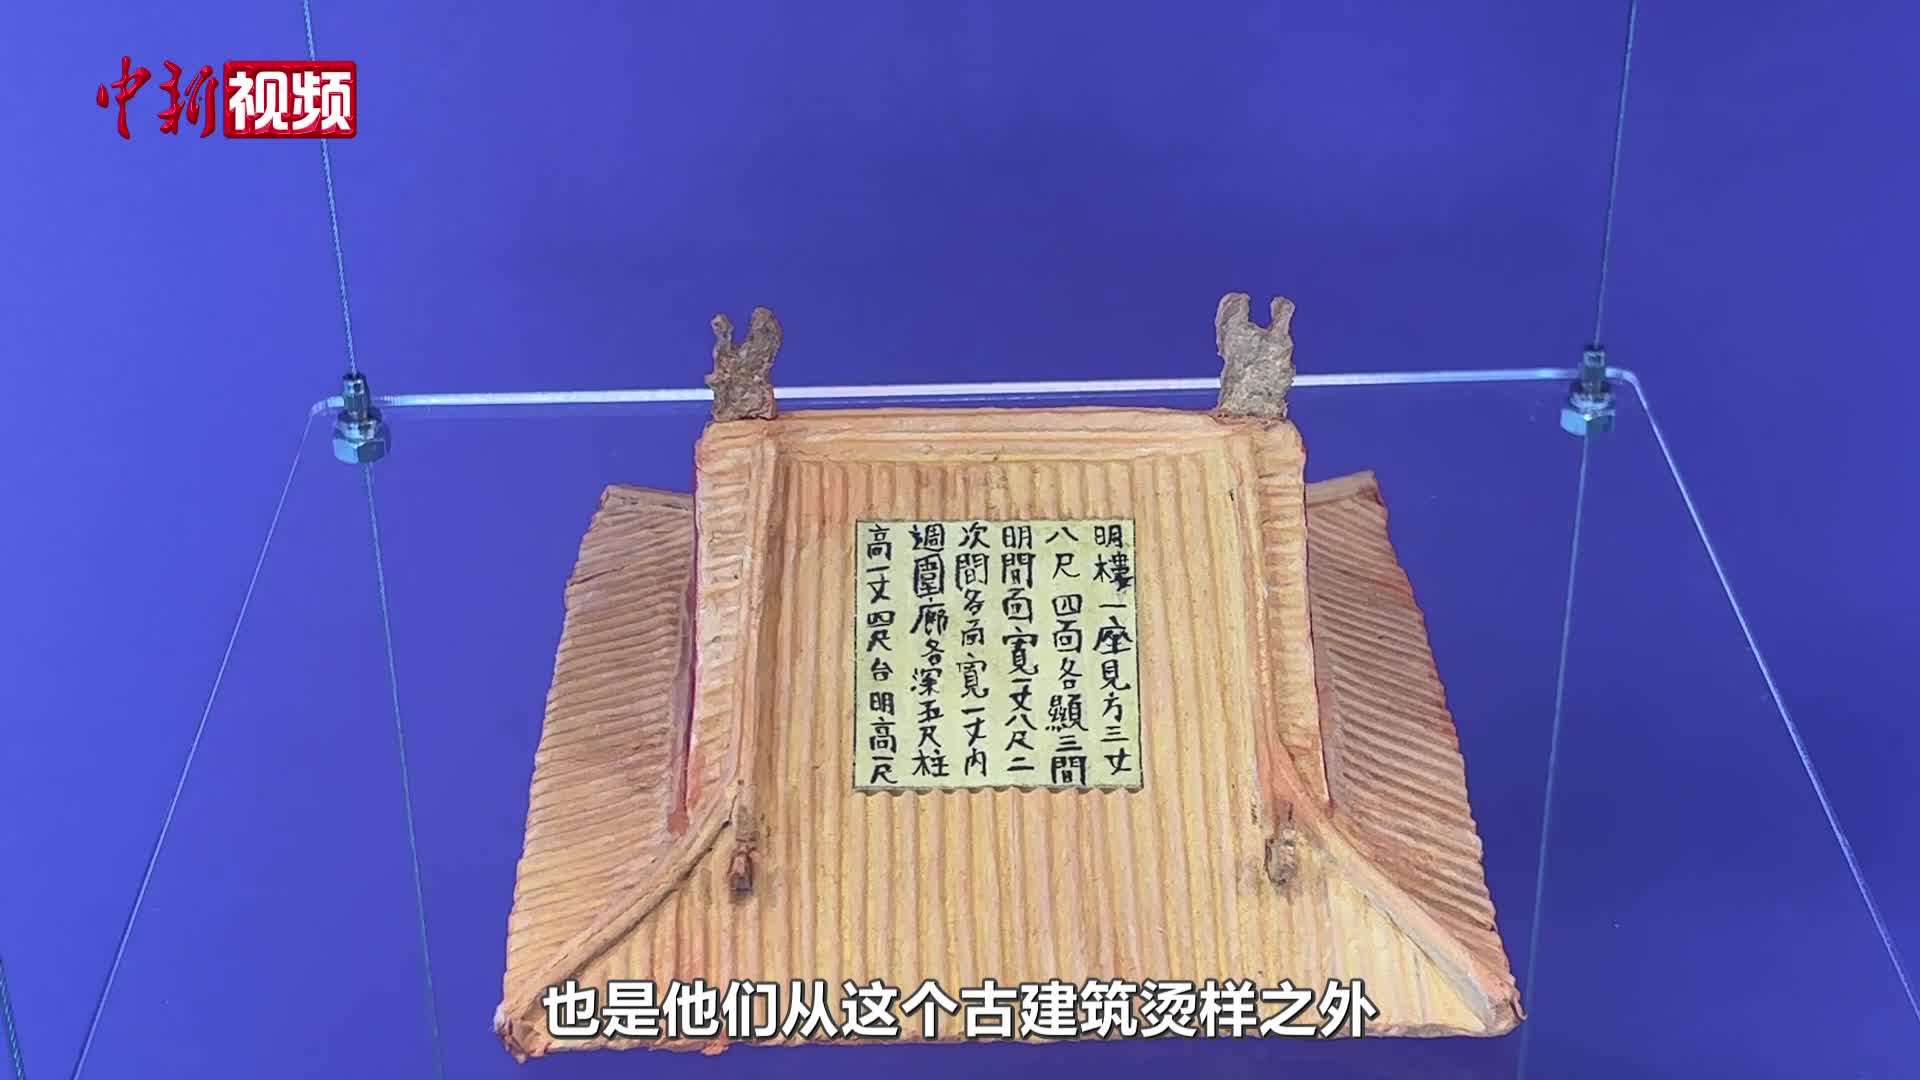 中新视频
明樓一座見方三丈
八尺四面各顯三間
明間面寬一丈八尺二
次間各面寬一丈内
週圍廊各深五尺柱
高一丈四尺台明高一尺
也是他们从这个古建筑烫样之外